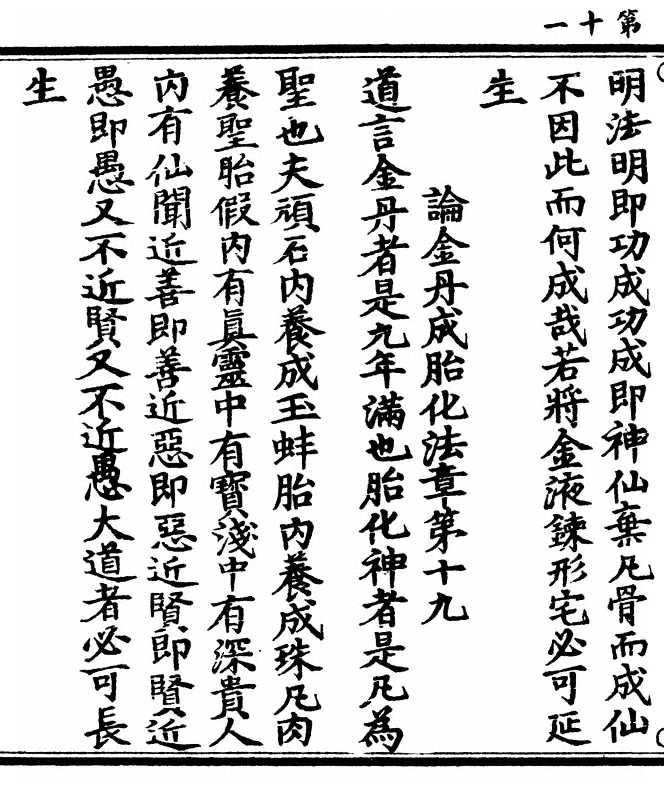 第十一
明法明即功成功成即神仙棄凡骨而成仙
不因此而何成哉若將金液鍊形宅必可延
生
論金丹成胎化法章第十九
道言金丹者是九年滿也胎化神者是凡為
聖也夫頑石内養成玉蚌胎内養成珠凡肉
養聖胎假内有真靈中有寶淺中有深貴人
内有仙聞近善即善近惡即惡近賢即賢近
愚即愚又不近賢又不近愚大道者必可長
生